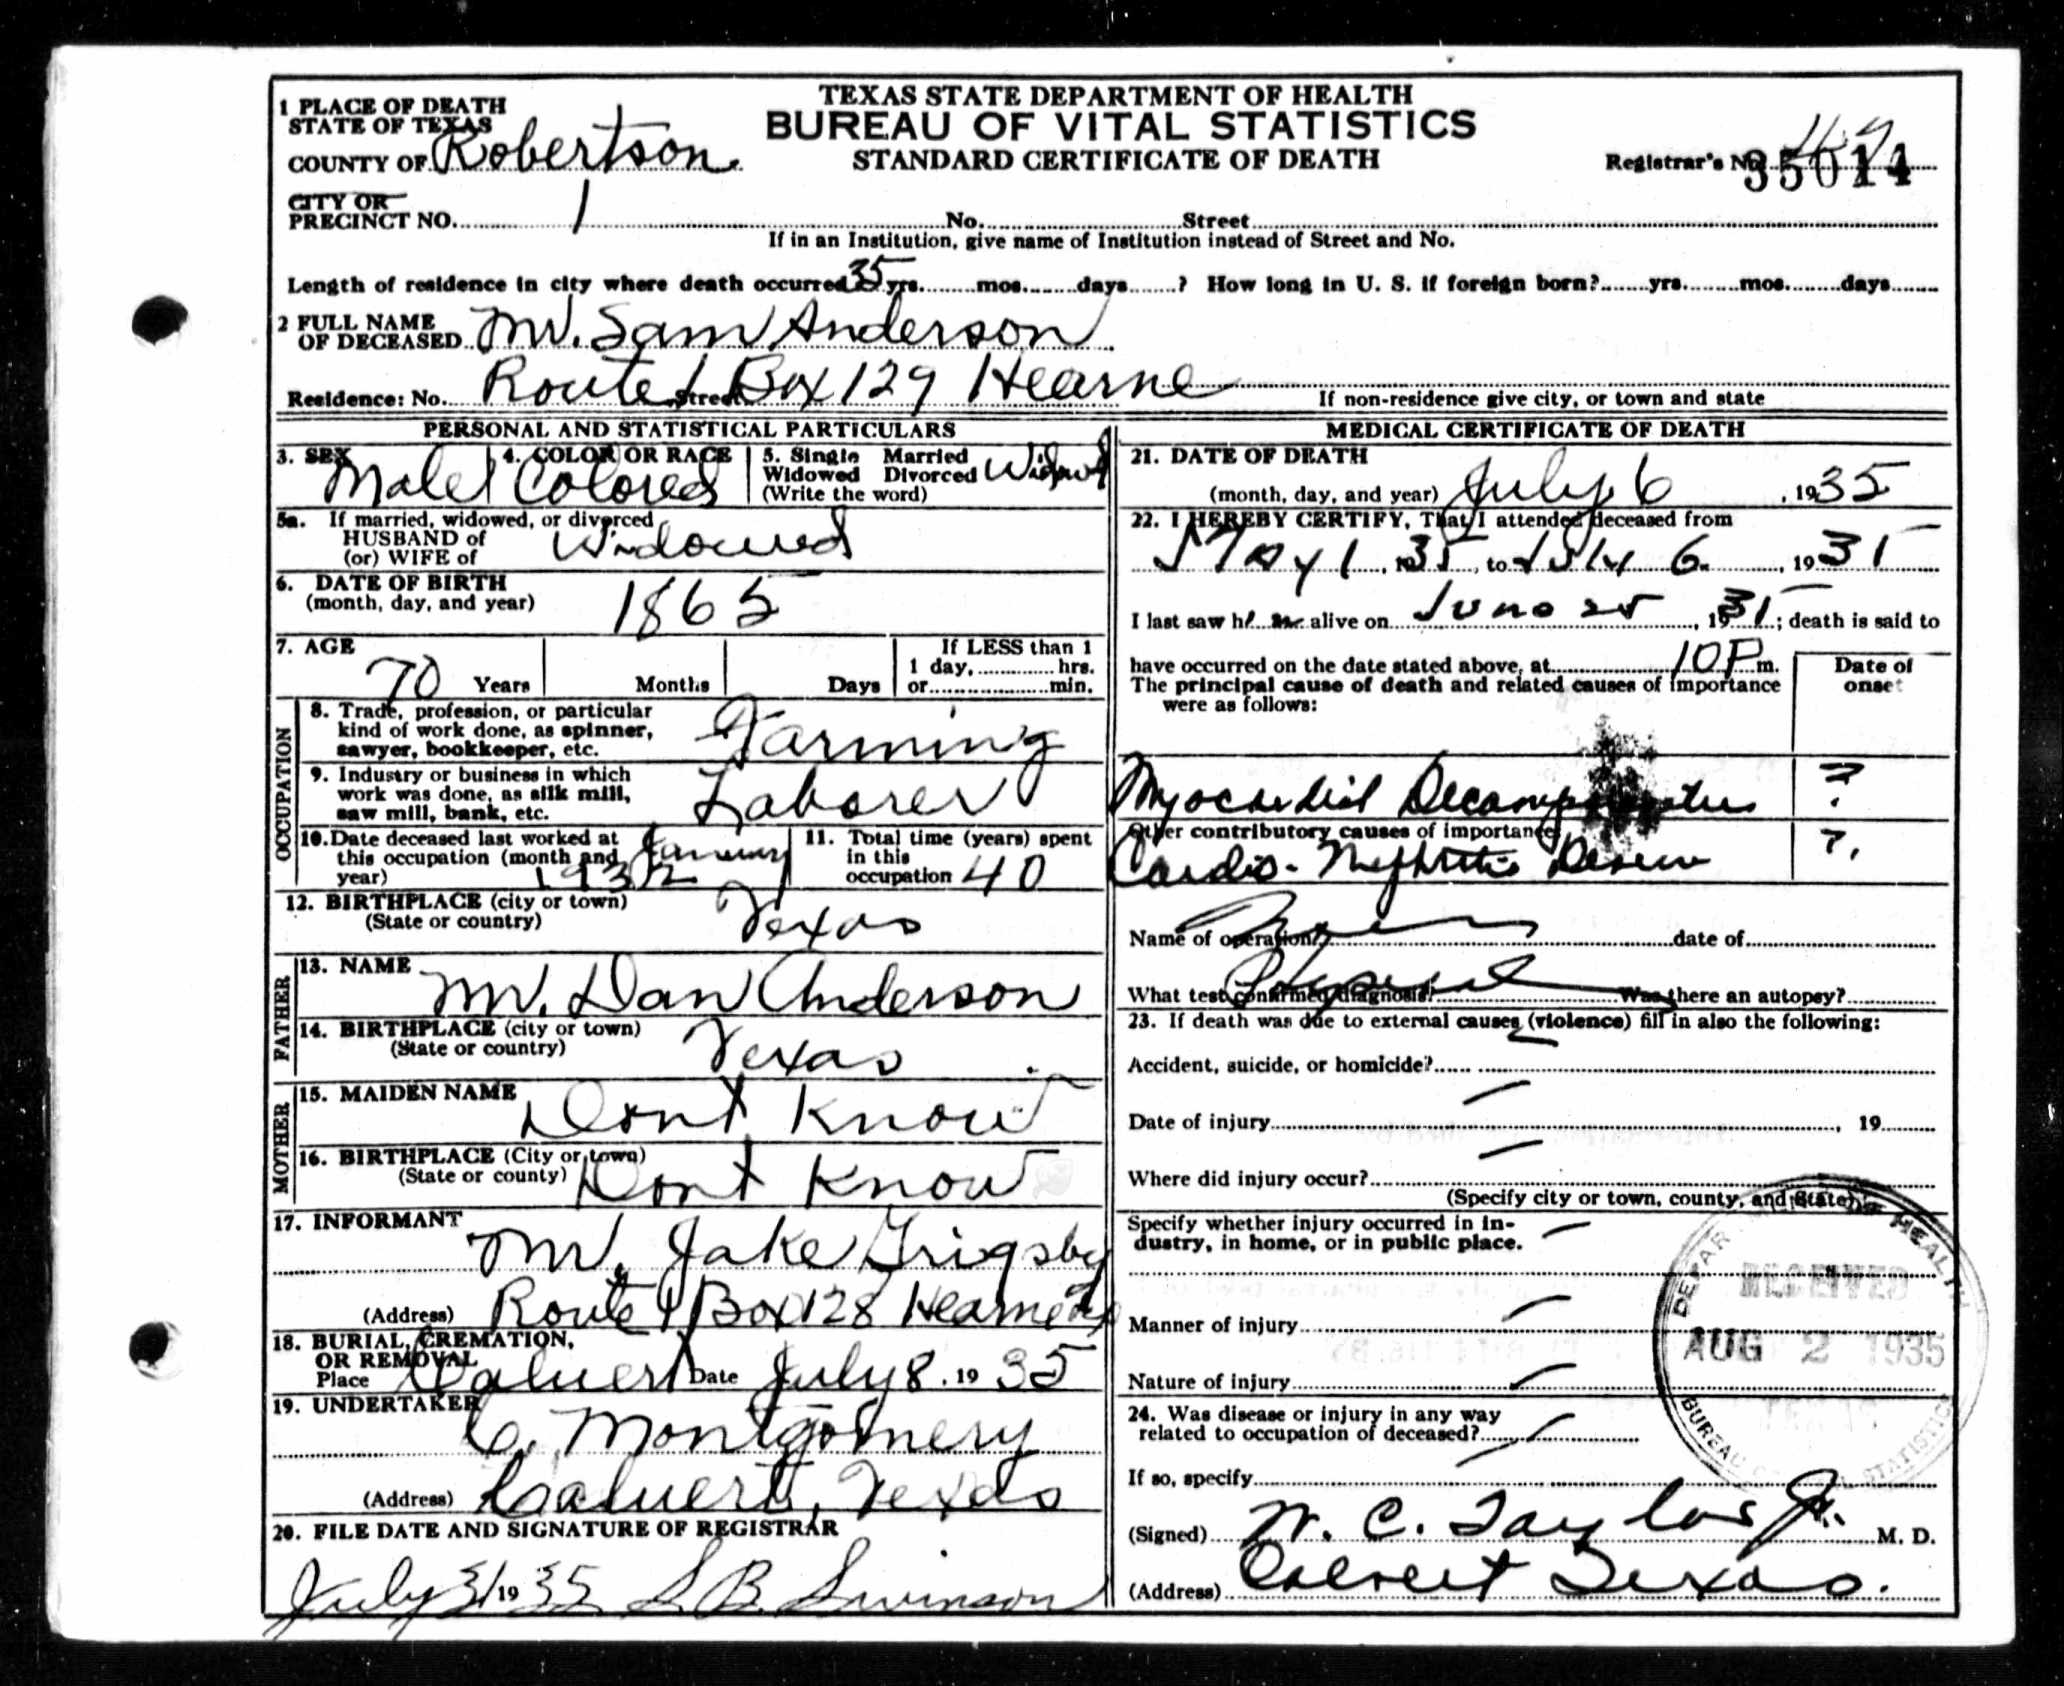 TEXAS STATE DEPARTMENT OF HEALTH
BUREAU OF VITAL STATISTICS
STANDARD CERTIFICATE OF DEATH
1 PLACE OF DEATH
STATE OF TEXAS
COUNTY OF Robertson
Registrar's No. 35014
CITY OR
PRECINCT NO. 1 No. Street
If in an Institution, give name of Institution instead of Street and No.
Length of residence in city where death occurred 35 yrs. mos. days ? How long in U. S. if foreign born? yrs. mos. days
2 FULL NAME
OF DECEASED Mr. Sam Anderson
Residence: No. Route 1 Street Box 129 Hearne
If non-residence give city, or town and state
PERSONAL AND STATISTICAL PARTICULARS
3. SEX Male
4. COLOR OR RACE Colored
5. Single Married
Widowed Divorced
(Write the word) Widowed
5a. If married, widowed, or divorced
HUSBAND of
(or) WIFE of Widowed
6. DATE OF BIRTH
(month, day, and year) 1865
7. AGE
70 Years Months Days
If LESS than 1
1 day, hrs.
or min.
OCCUPATION
8. Trade, profession, or particular
kind of work done, as spinner,
sawyer, bookkeeper, etc. Farming
9. Industry or business in which
work was done, as silk mill,
saw mill, bank, etc. Laborer
10. Date deceased last worked at
this occupation (month and
year) January 1932
11. Total time (years) spent
in this
occupation 40
12. BIRTHPLACE (city or town)
(State or country) Texas
FATHER
13. NAME Mr. Dan Anderson
14. BIRTHPLACE (city or town)
(State or country) Texas
MOTHER
15. MAIDEN NAME Dont Know
16. BIRTHPLACE (City or town)
(State or county) Dont Know
17. INFORMANT
Mr. Jake Grigsby
(Address) Route 1 Box 128 Hearne
18. BURIAL, CREMATION,
OR REMOVAL
Place Calvert Date July 8, 19 35
19. UNDERTAKER
C. Montgomery
(Address) Calvert, Texas
20. FILE DATE AND SIGNATURE OF REGISTRAR
July 31 19 35 S. B. Swinson
MEDICAL CERTIFICATE OF DEATH
21. DATE OF DEATH
(month, day, and year) July 6, 1935
22. I HEREBY CERTIFY, That I attended deceased from
May 1, 1935, to July 6, 1935
I last saw him alive on June 25, 1935; death is said to
have occurred on the date stated above, at 10 P m.
The principal cause of death and related causes of importance
were as follows:
Date of
onset
Myocardial Decompensation ?
Other contributory causes of importance
Cardio-Nephritic Disease ?
Name of operation? None date of
What test confirmed diagnosis? Physical Was there an autopsy?
23. If death was due to external causes (violence) fill in also the following:
Accident, suicide, or homicide?
Date of injury , 19
Where did injury occur?
(Specify city or town, county, and State)
Specify whether injury occurred in in-
dustry, in home, or in public place.
Manner of injury
Nature of injury
24. Was disease or injury in any way
related to occupation of deceased?
If so, specify
(Signed) W. C. Taylor Jr. M. D.
(Address) Calvert Texas.
HEALTH
RECEIVED
AUG 2 1935
BUREAU STATISTICS